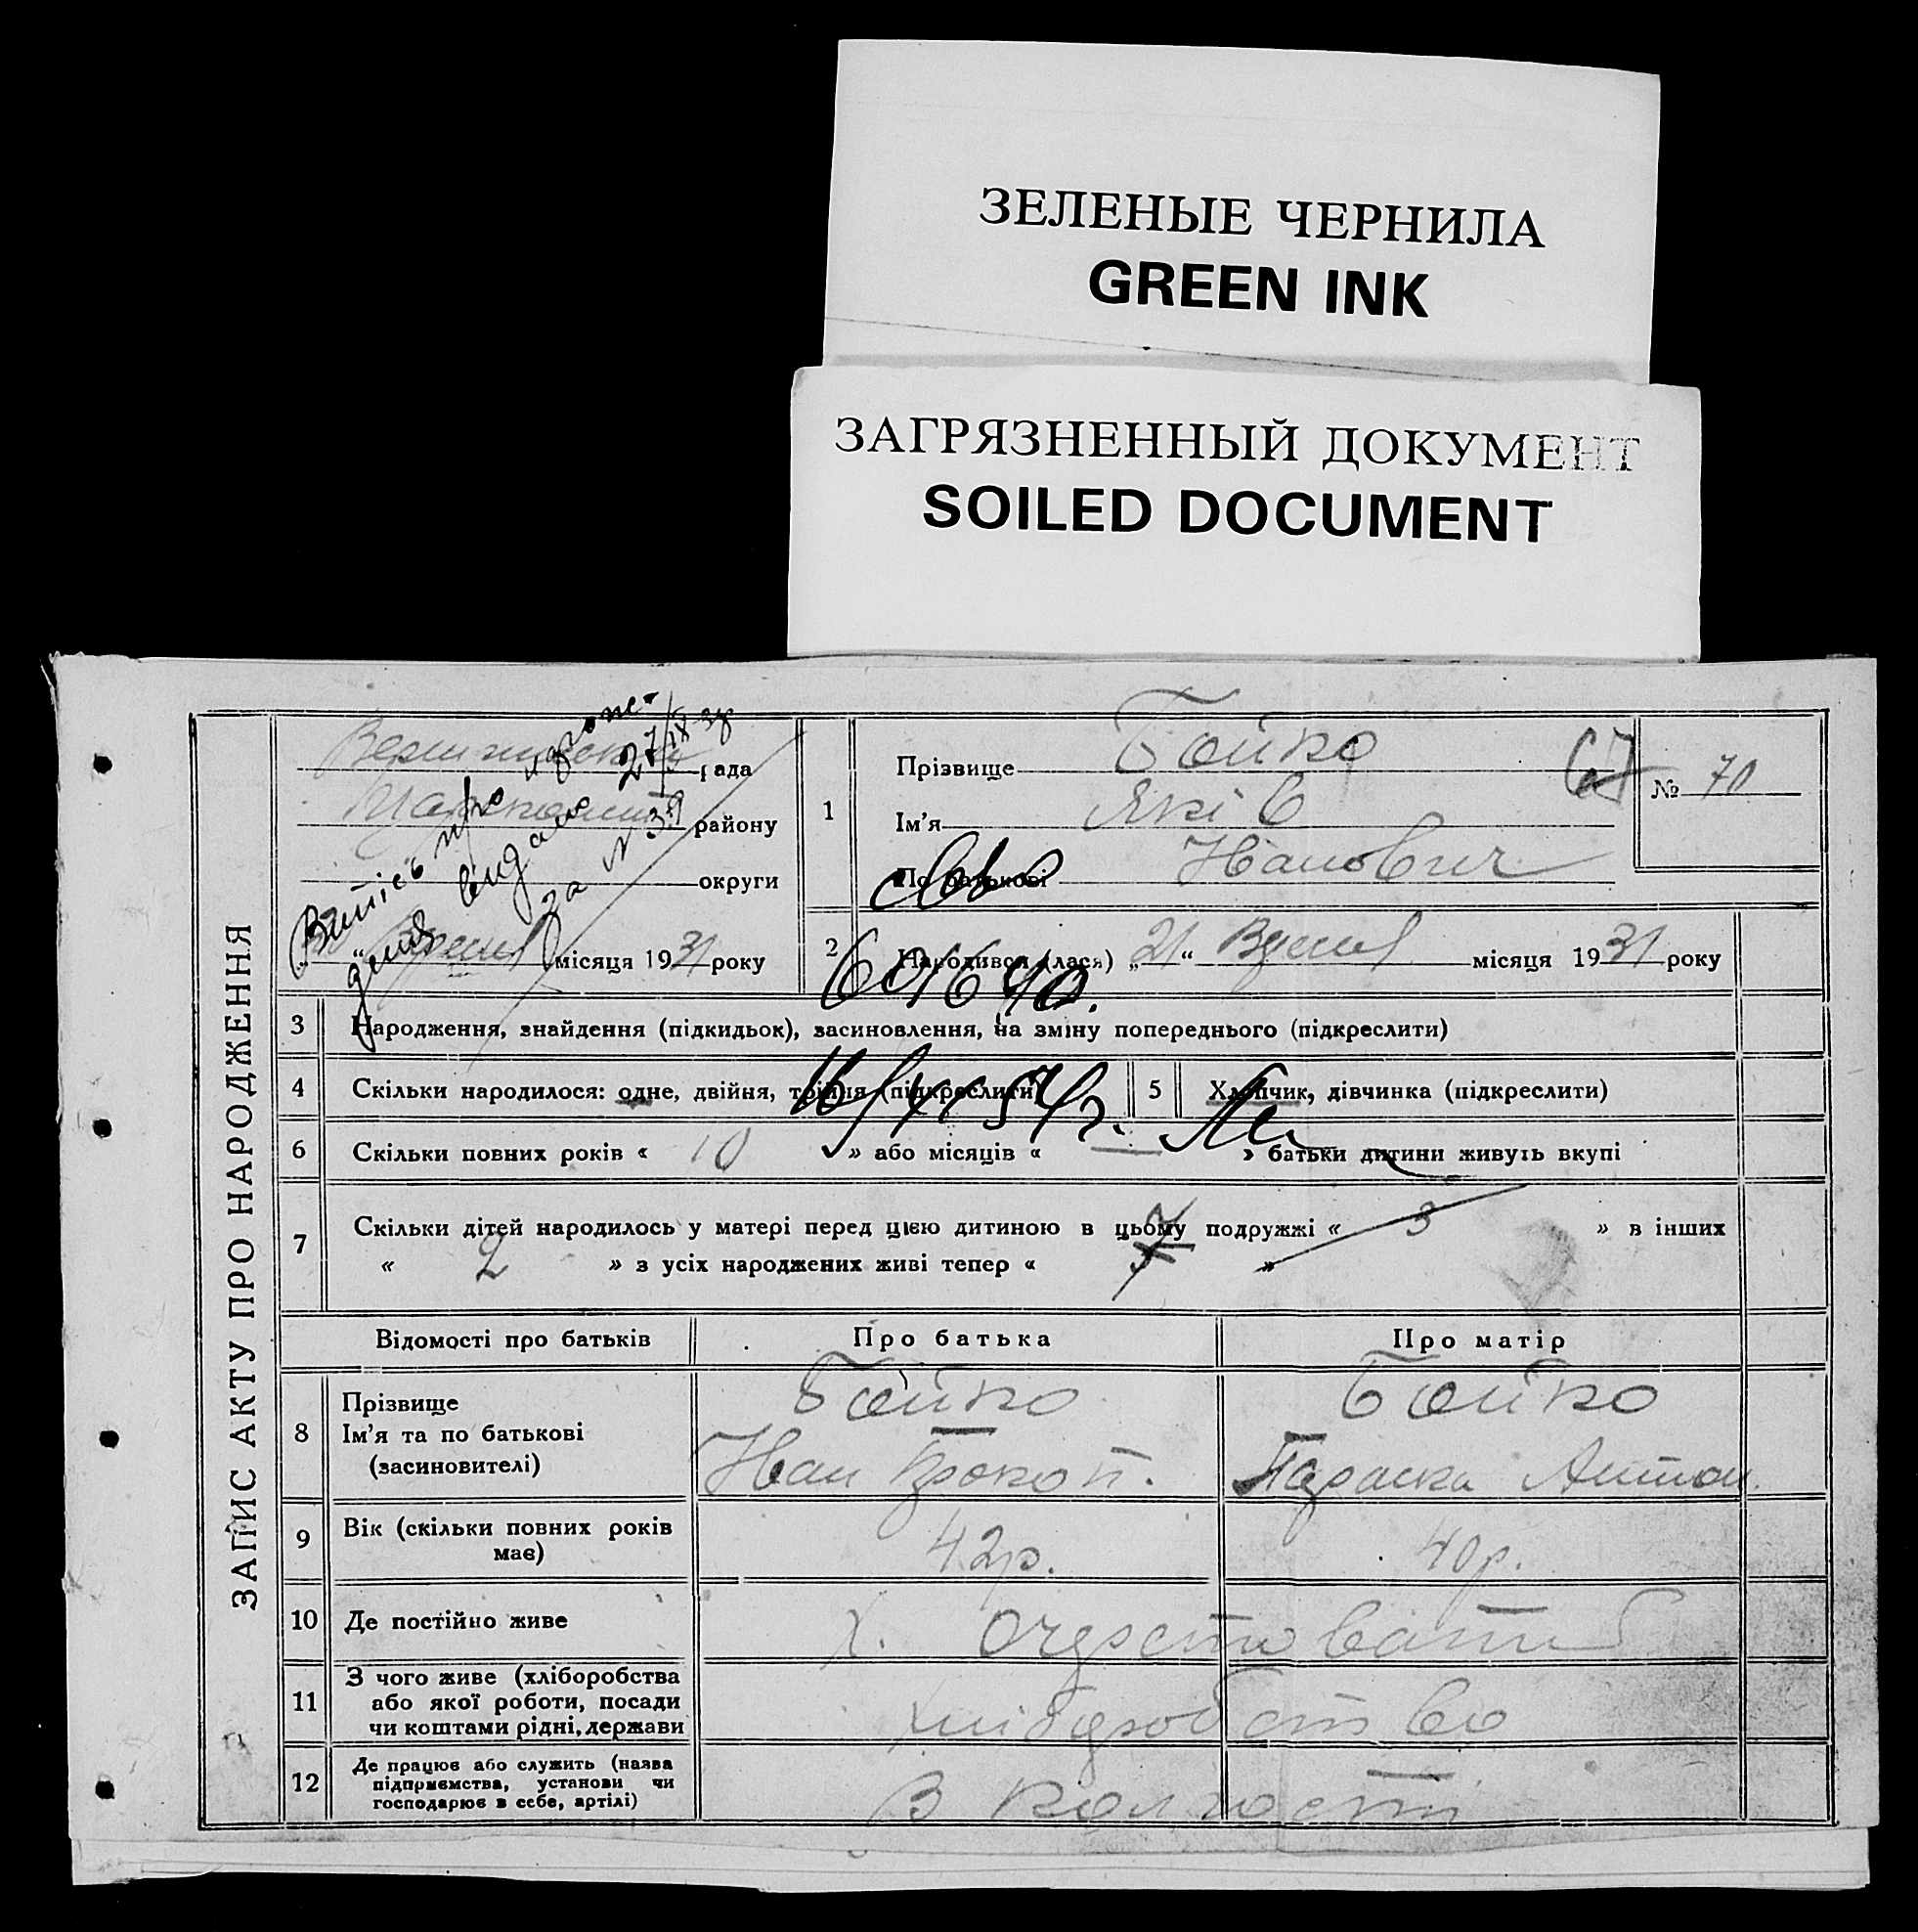 ЗЕЛЕНЫЕ ЧЕРНИЛА
GREEN INK
ЗАГРЯЗНЕННЫЙ ДОКУМЕНТ
SOILED DOCUMENT
ЗАПИС АКТУ ПРО НАРОДЖЕННЯ
рада
району
округи
місяця 1931 року
Витяг про народже-
ння видано 27/IX-38
за №
1 Прізвище Бойко
Ім’я Яків
По батькові Іванович
№ 70
2 Народився (лася) „21“ Вересня місяця 1931 року
3 Народження, знайдення (підкидьок), засиновлення, на зміну попереднього (підкреслити)
4 Скільки народилося: одне, двійня, трійня (підкреслити)
5 Хлопчик, дівчинка (підкреслити)
6 Скільки повних років « 10 » або місяців « — » батьки дитини живуть вкупі
7 Скільки дітей народилось у матері перед цією дитиною в цьому подружжі « 3 » в інших
« 2 » з усіх народжених живі тепер « »
Відомості про батьків Про батька Про матір
8 Прізвище
Ім’я та по батькові
(засиновителі)
Бойко
Іван Прокоп.
Бойко
Параска Антон.
9 Вік (скільки повних років
має)
42р. 40р.
10 Де постійно живе
х. Очеретовати
11 З чого живе (хліборобства
або якої роботи, посади
чи коштами рідні, держави
хліборобство
12 Де працює або служить (назва
підприємства, установи чи
господарює в себе, артілі)
В колгоспі